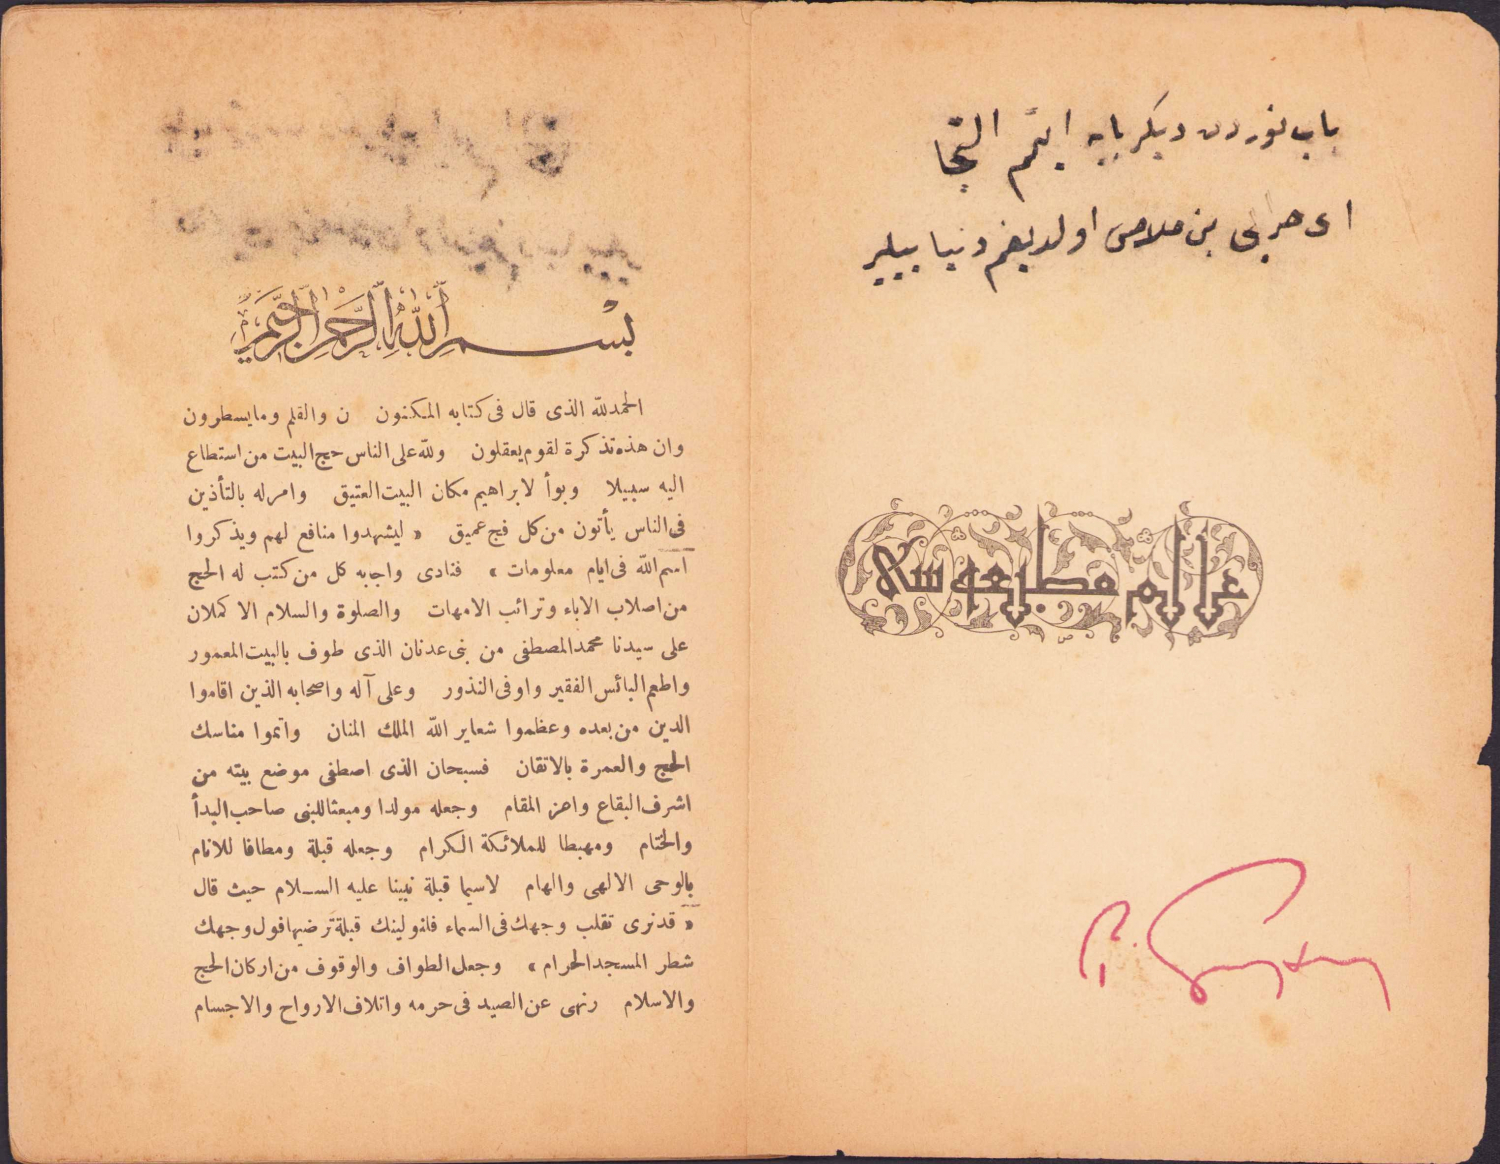 باب نوردن دیكر بابه ایتم التجا
ای حرابی بن خلاص اولدیغم دنیا بیلیر
عالم مطبعه سی
بسم الله الرحمن الرحيم
الحمدلله الذى قال فى كتابه المكنون ن والقلم ومايسطرون
وان هذه تذكرة لقوم يعقلون ولله على الناس حج البيت من استطاع
اليه سبيلا وبوأ لابراهيم مكان البيت العتيق وامرله بالتأذين
فى الناس يأتون من كل فج عميق « ليشهدوا منافع لهم ويذكروا
اسم الله فى ايام معلومات » فنادى واجابه كل من كتب له الحج
من اصلاب الاباء وترائب الامهات والصلوة والسلام الاكملان
على سيدنا محمد المصطفى من بنى عدنان الذى طوف بالبيت المعمور
واطعم البائس الفقير واوفى النذور وعلى آله واصحابه الذين اقاموا
الدين من بعده وعظموا شعاير الله الملك المنان واتموا مناسك
الحج والعمرة بالاتقان فسبحان الذى اصطفى موضع بيته من
اشرف البقاع واعز المقام وجعله مولدا ومبعثا للنبى صاحب البدأ
والختام ومهبطا للملائكة الكرام وجعله قبلة ومطافا للانام
بالوحى الالهى والهام لاسيما قبلة نبينا عليه الســلام حيث قال
« قدنرى تقلب وجهك فى السماء فلنولينك قبلة ترضيها فول وجهك
شطر المسجد الحرام » وجعل الطواف والوقوف من اركان الحج
والاسلام ونهى عن الصيد فى حرمه واتلاف الارواح والاجسام